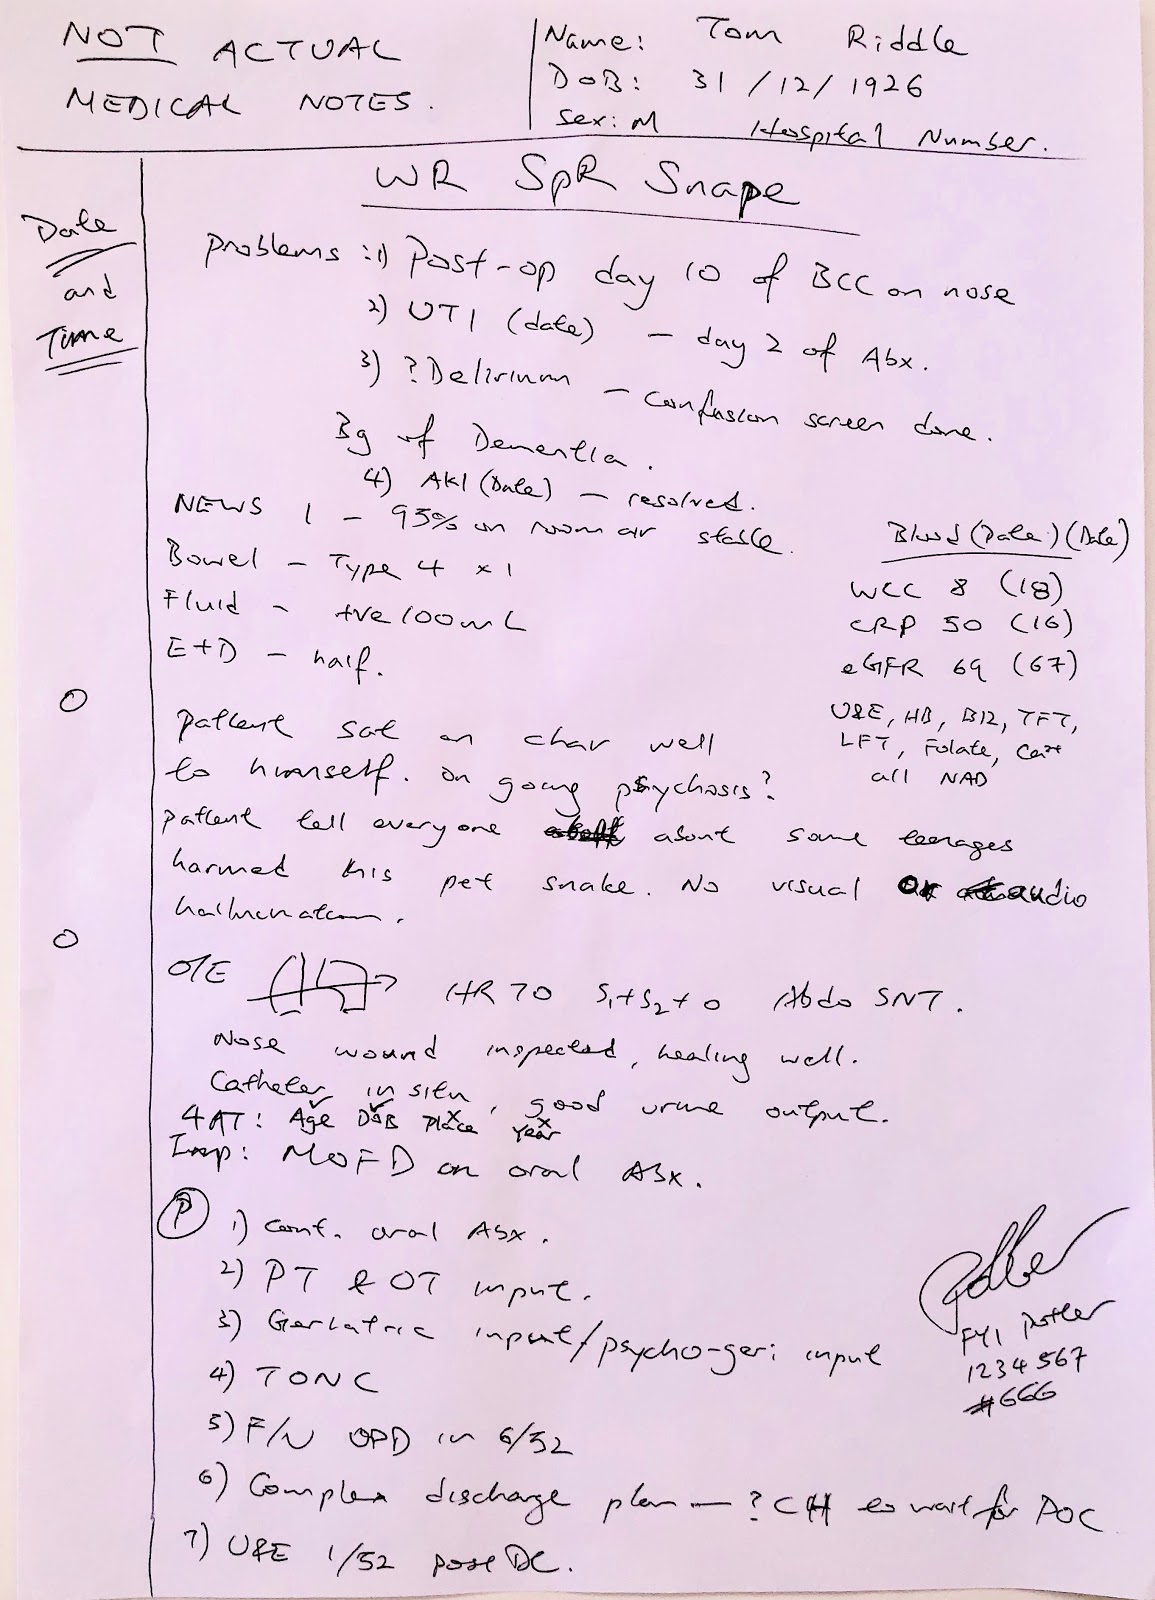 NOT ACTUAL
MEDICAL NOTES.
Name: Tom Riddle
DoB: 31/12/1926
Sex: M Hospital Number.
Date
and
Time
WR SpR Snape
Problems: 1) Post-op day 10 of BCC on nose
2) UTI (date) - day 2 of Abx.
3) ?Delirium - confusion screen done.
Bg of Dementia.
4) AKI (Date) - resolved.
NEWS 1 - 95% on room air stable.
Bowel - Type 4 x1
Fluid - +ve 100mL
E+D - half.
Blood (Date) (Date)
WCC 8 (18)
CRP 50 (16)
eGFR 69 (67)
U&E, HB, B12, TFT,
LFT, Folate, Ca2+
all NAD
Patient sat on chair well
to himself. On going psychosis?
Patient tell everyone about some teenages
harmed his pet snake. No visual or audio
hallucination.
O/E HR 70 S1+S2+0 Abdo SNT.
Nose wound inspected, healing well.
Catheter in situ, good urine output.
4AT: Age ✓ DOB ✓ Place x Year x
Imp: MOFD on oral Abx.
P 1) Cont. oral Abx.
2) PT & OT input.
3) Geriatric input/psycho-geri input
4) TONC
5) F/U OPD in 6/52
6) Complex discharge plan - ? CH to wait for POC
7) U&E 1/52 post DC.
FY1
1234567
#666